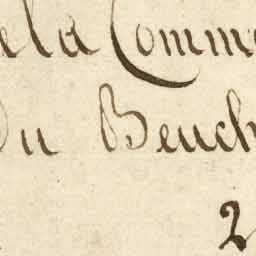 de la Comm
Du Beuch
2